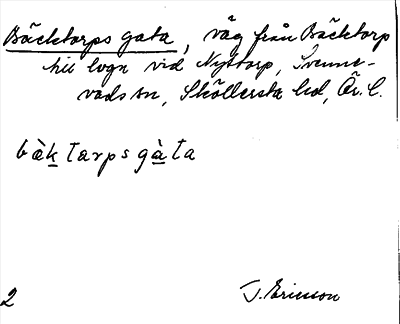 Bäcktorps gata, väg från Bäcktorp
till logn vid Nyttorp, Svenne-
vads sn, Sköllersta hd, Ör. l.
bàktarpsgàta
2
J. Ericsson